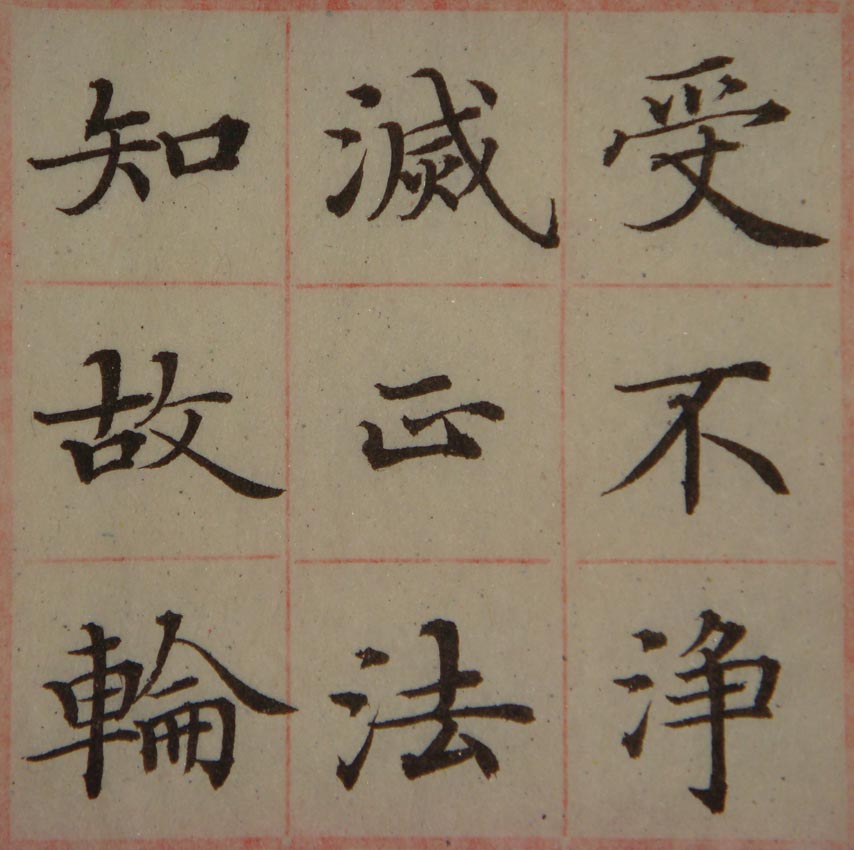 受不浄
滅正法
知故輪